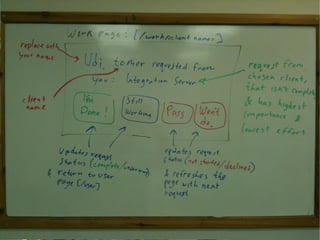 Work page: [/work/client name]
replace with
your name
Udi, tomer requested from
you: Integration Server
client
name
request from
chosen client,
that isn't complete
& has highest
importance &
lowest effort
I'm
Done!
Still
Working
Pass
Won't
do.
updates request
status (complete/
& return to user
page [/user]
updates request
status (not started/declines)
& refreshes the
page with next
request